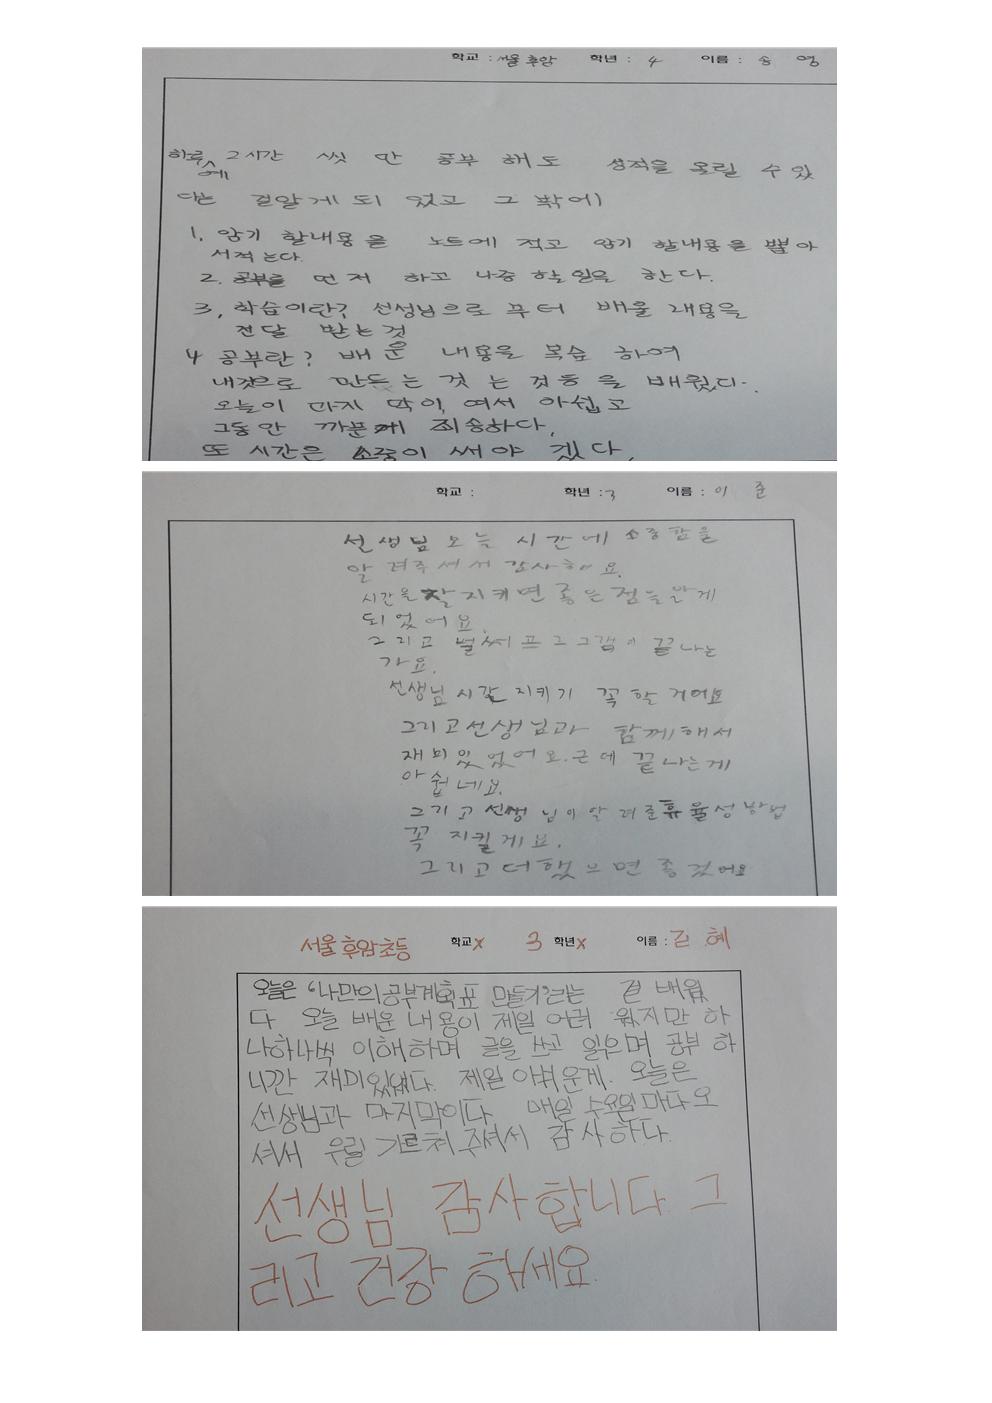 학교 : 서울 후암 학년 : 4 이름 : 송 영
하루에 2시간 씻 만 공부 해도 성적을 올릴 수 있
다는 걸알게 되 었고 그 밖에
1. 암기 할내용을 노트에 적고 암기 할내용을 뽑아
서적는다.
2. 공부를 먼저 하고 나중 할일을 한다.
3, 학습이란? 선생님으로 부터 배울 내용을
전달 받는것
4 공부란? 배운 내용을 복습 하여
내것으로 만드는 것 는 것등 을 배웠다.
오늘이 마지 막이, 여서 아쉽고
그동안 까분게 죄송하다,
또 시간은 소중이 써야 겠다,
학교 : 학년 : 3 이름 : 이 준
선생님 오늘 시간에 소중함을
알려주셔서 감사해요.
시간을 잘지키면 좋은점을알게
되었어요.
그리고 벌써 프로그램이 끝나는
가요.
선생님 시간 지키기 꼭 할 거에요
그리고선생님과 함께해서
재미있었어요.근데 끝나는게
아쉽네요.
그리고 선생님이 알려준휴율성방법
꼭 지킬게요.
그리고더했으면 좋겠어요
서울후암초등 학교x 3 학년x 이름 : 김 혜
오늘은 "나만의공부계획표 만들기"라는 걸 배웠
다 오늘 배운 내용이 제일 어려 웠지만 하
나하나씩 이해하며 글을 쓰고 읽으며 공부 하
니깐 재미있었다. 제일 아쉬운게. 오늘은
선생님과 마지막이다. 매일 수요일마다오
셔서 우릴 가르쳐주셔서 감사하다.
선생님 감사합니다 그
리고 건강 하세요